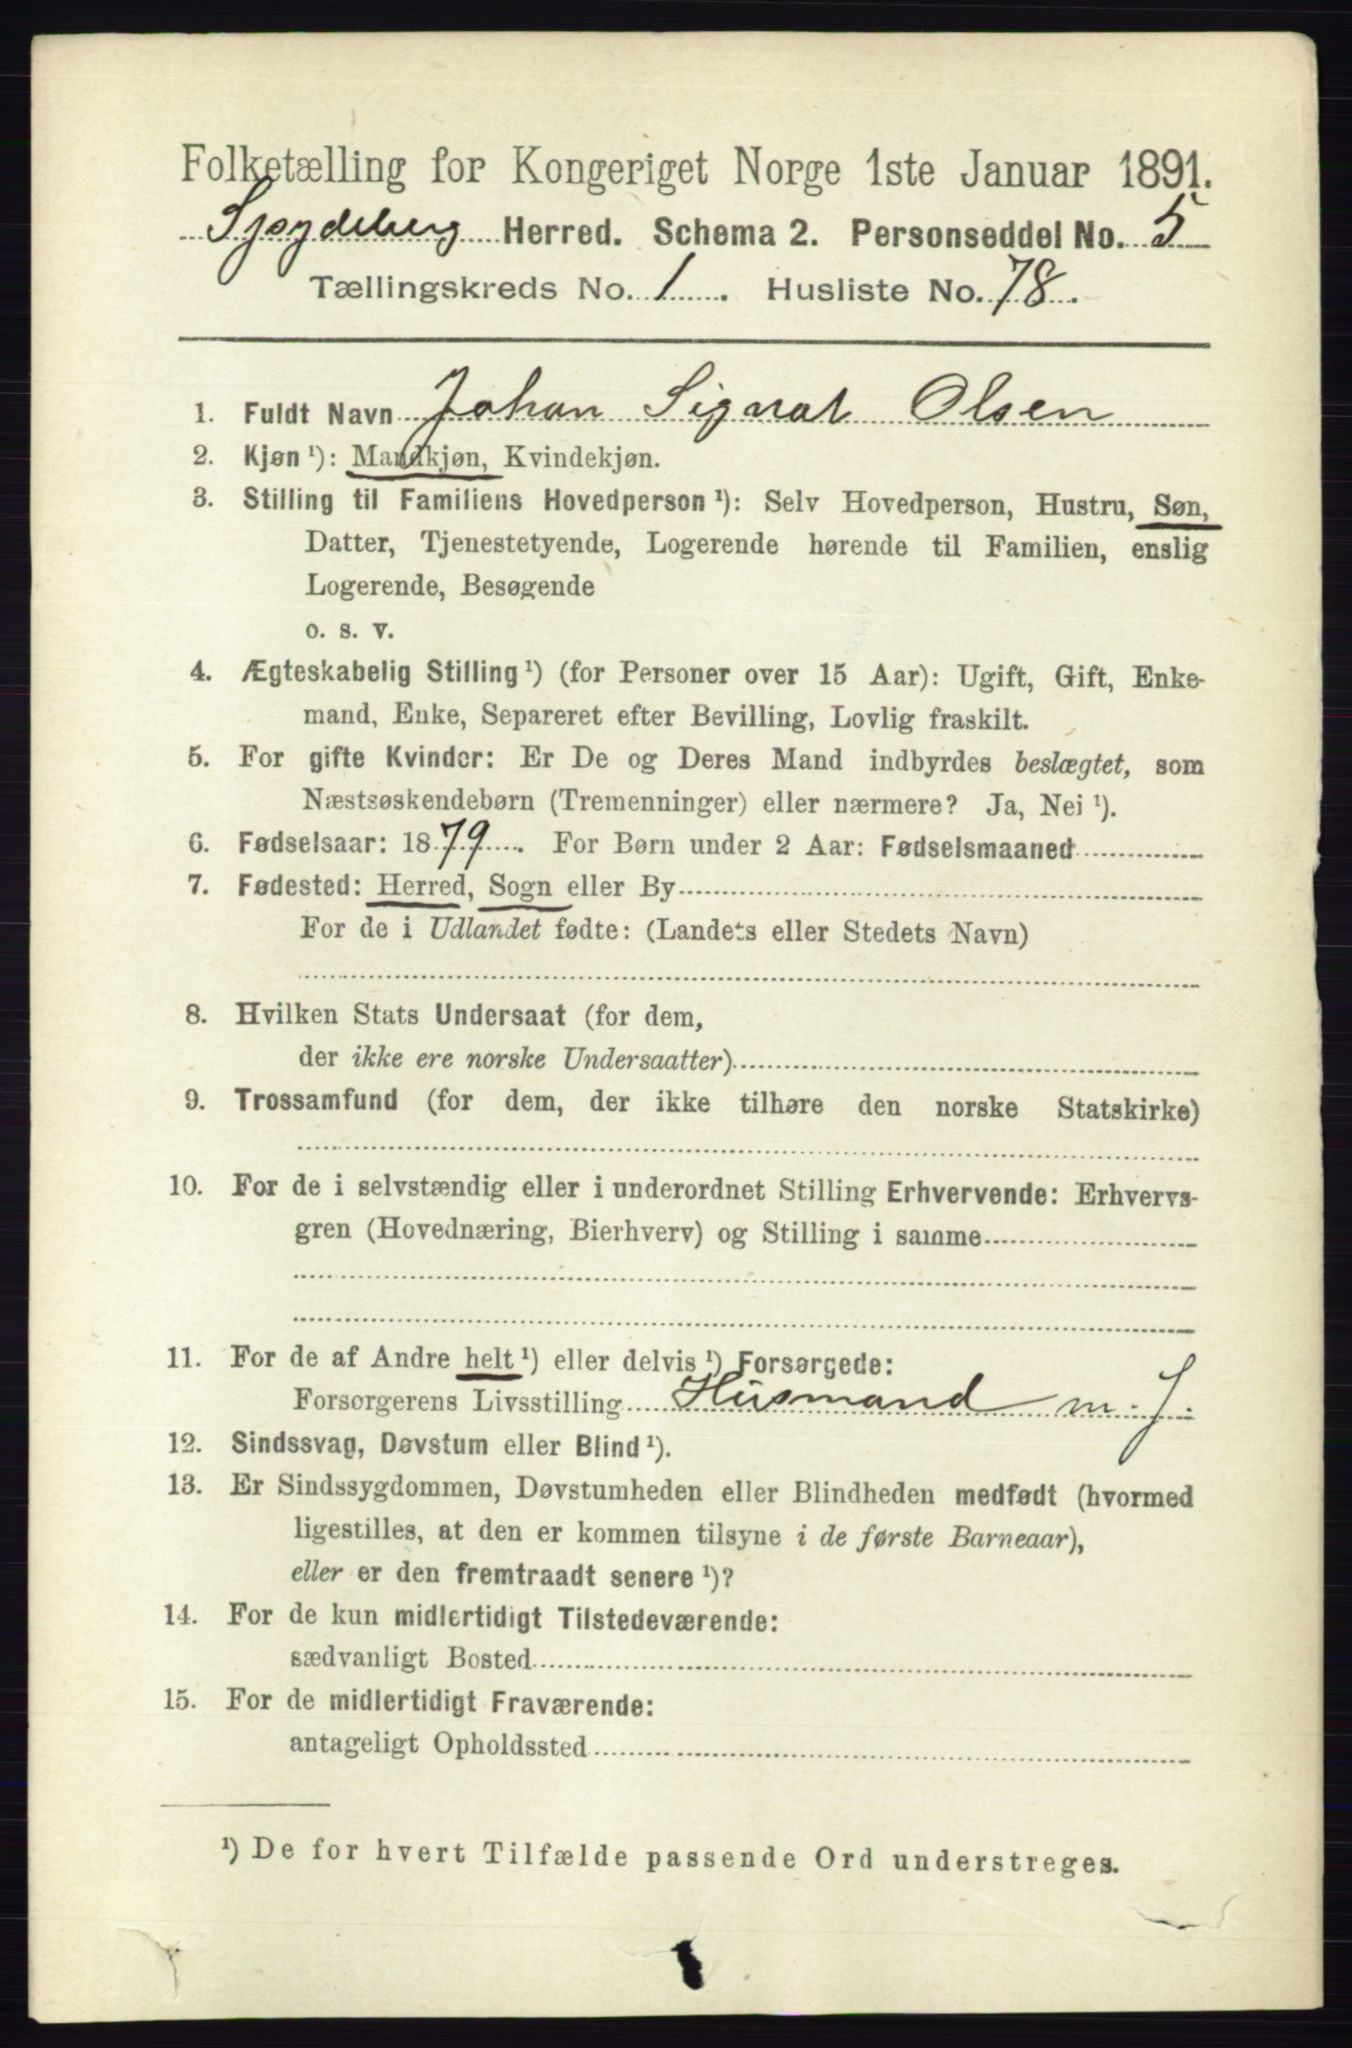 Folketælling for Kongeriget Norge 1ste Januar 1891.
Spydeberg Herred. Schema 2. Personseddel No. 5
Tællingskreds No. 1. Husliste No. 78.
1. Fuldt Navn Johan Signval Olsen
2. Kjøn ¹): Mandkjøn, Kvindekjøn.
3. Stilling til Familiens Hovedperson ¹): Selv Hovedperson, Hustru, Søn,
Datter, Tjenestetyende, Logerende hørende til Familien, enslig
Logerende, Besøgende
o. s. v.
4. Ægteskabelig Stilling ¹) (for Personer over 15 Aar): Ugift, Gift, Enke-
mand, Enke, Separeret efter Bevilling, Lovlig fraskilt.
5. For gifte Kvinder: Er De og Deres Mand indbyrdes beslægtet, som
Næstsøskendebørn (Tremenninger) eller nærmere? Ja, Nei ¹).
6. Fødselsaar: 1879. For Børn under 2 Aar: Fødselsmaaned
7. Fødested: Herred, Sogn eller By
For de i Udlandet fødte: (Landets eller Stedets Navn)
8. Hvilken Stats Undersaat (for dem,
der ikke ere norske Undersaatter)
9. Trossamfund (for dem, der ikke tilhøre den norske Statskirke)
10. For de i selvstændig eller i underordnet Stilling Erhvervende: Erhvervs-
gren (Hovednæring, Bierhverv) og Stilling i samme
11. For de af Andre helt ¹) eller delvis ¹) Forsørgede:
Forsørgerens Livsstilling Husmand m. J.
12. Sindssvag, Døvstum eller Blind ¹).
13. Er Sindssygdommen, Døvstumheden eller Blindheden medfødt (hvormed
ligestilles, at den er kommen tilsyne i de første Barneaar),
eller er den fremtraadt senere ¹)?
14. For de kun midlertidigt Tilstedeværende:
sædvanligt Bosted
15. For de midlertidigt Fraværende:
antageligt Opholdssted
¹) De for hvert Tilfælde passende Ord understreges.